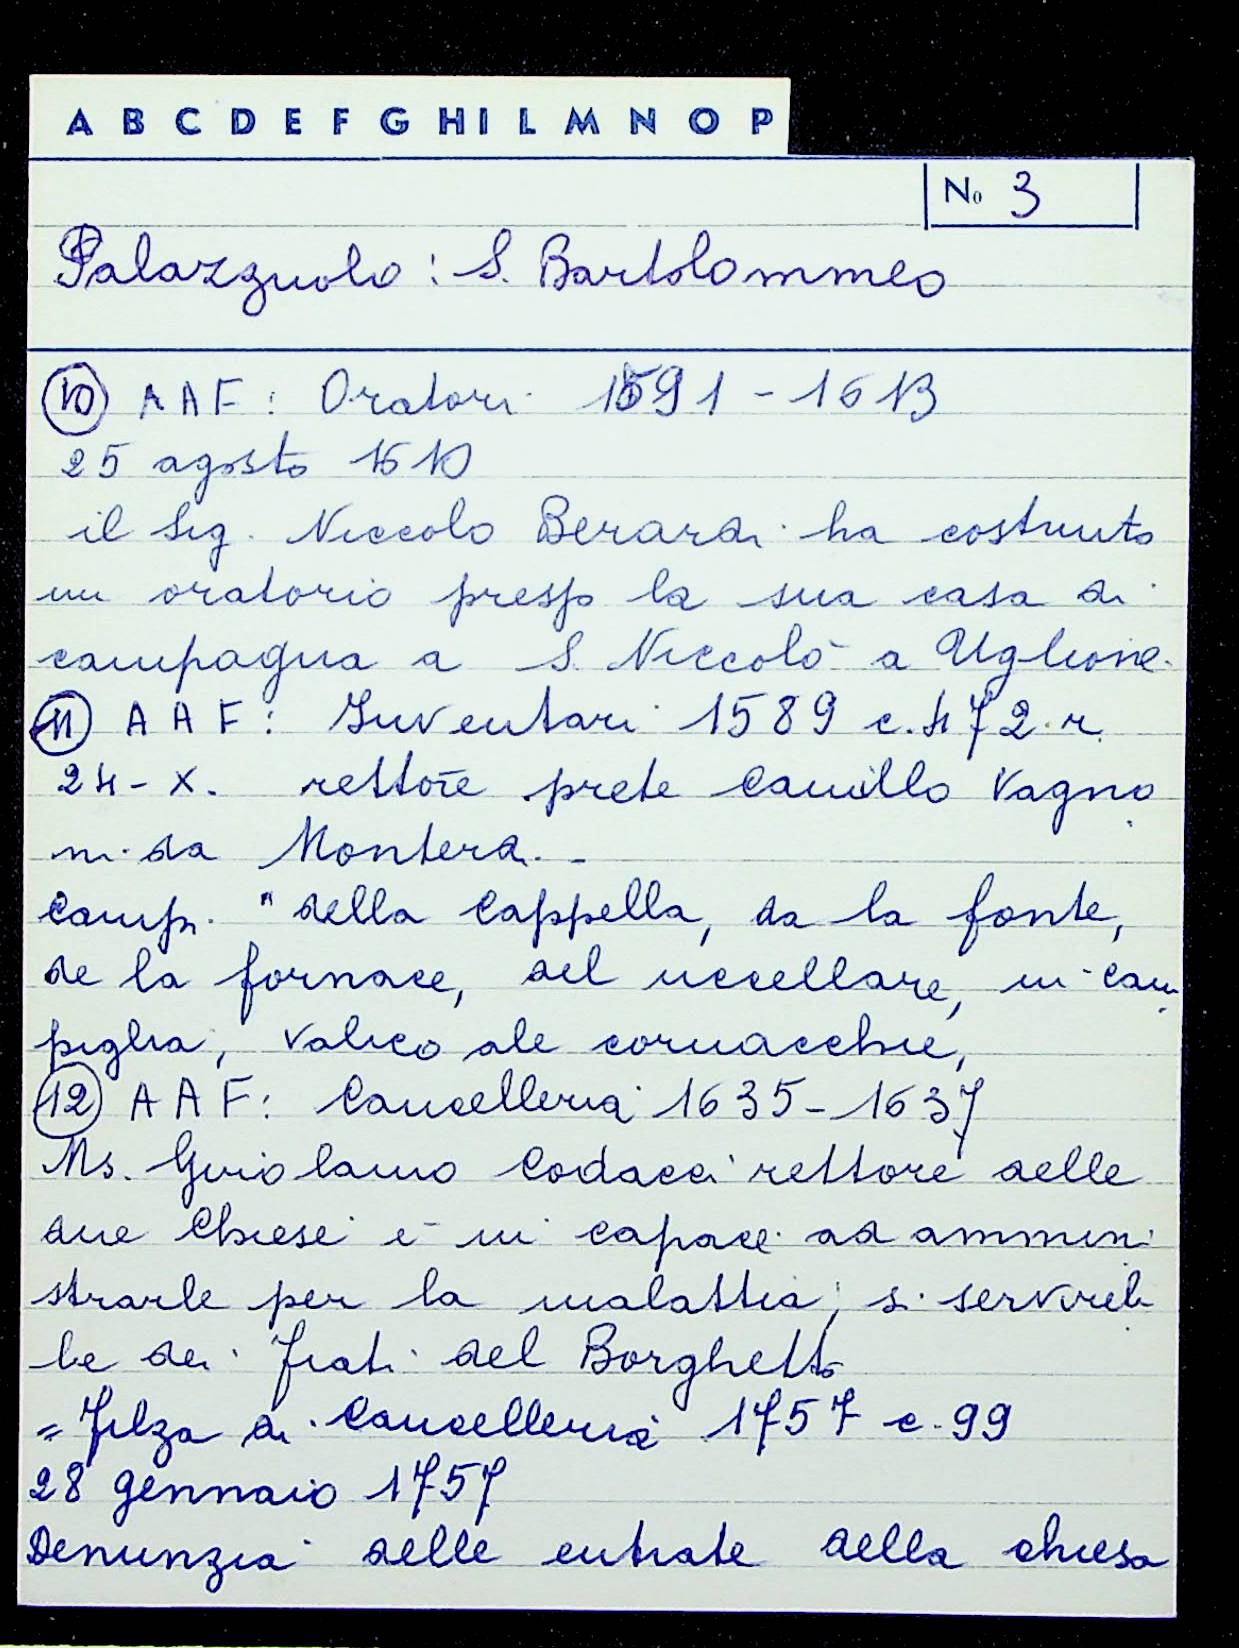 A B C D E F G H I L M N O P
No 3
Palazzuolo : S. Bartolommeo
10 A A F : Oratori 1591 - 1613
25 agosto 1610
il Sig. Niccolo Berardi ha costruito
un oratorio presso la sua casa di
campagna a S. Niccolò a Uglione.
11 A A F : Inventari 1589 c. 472. r.
24 - X. rettore prete Camillo Vagno
ni da Monterdi. -
Camp. " della Cappella, da la fonte,
de la fornace, del uccellare, in Cam
piglia, Valico ale cornacchie,
12 A A F : Cancelleria 1635 - 1637
Ms. Girolamo Codacci rettore delle
due Chiese è in capace ad ammini
strarle per la malattia; si servireb
be dei frati del Borghetto
= Filza di Cancelleria 1757 c. 99
28 gennaio 1757
Denunzia delle entrate della chiesa